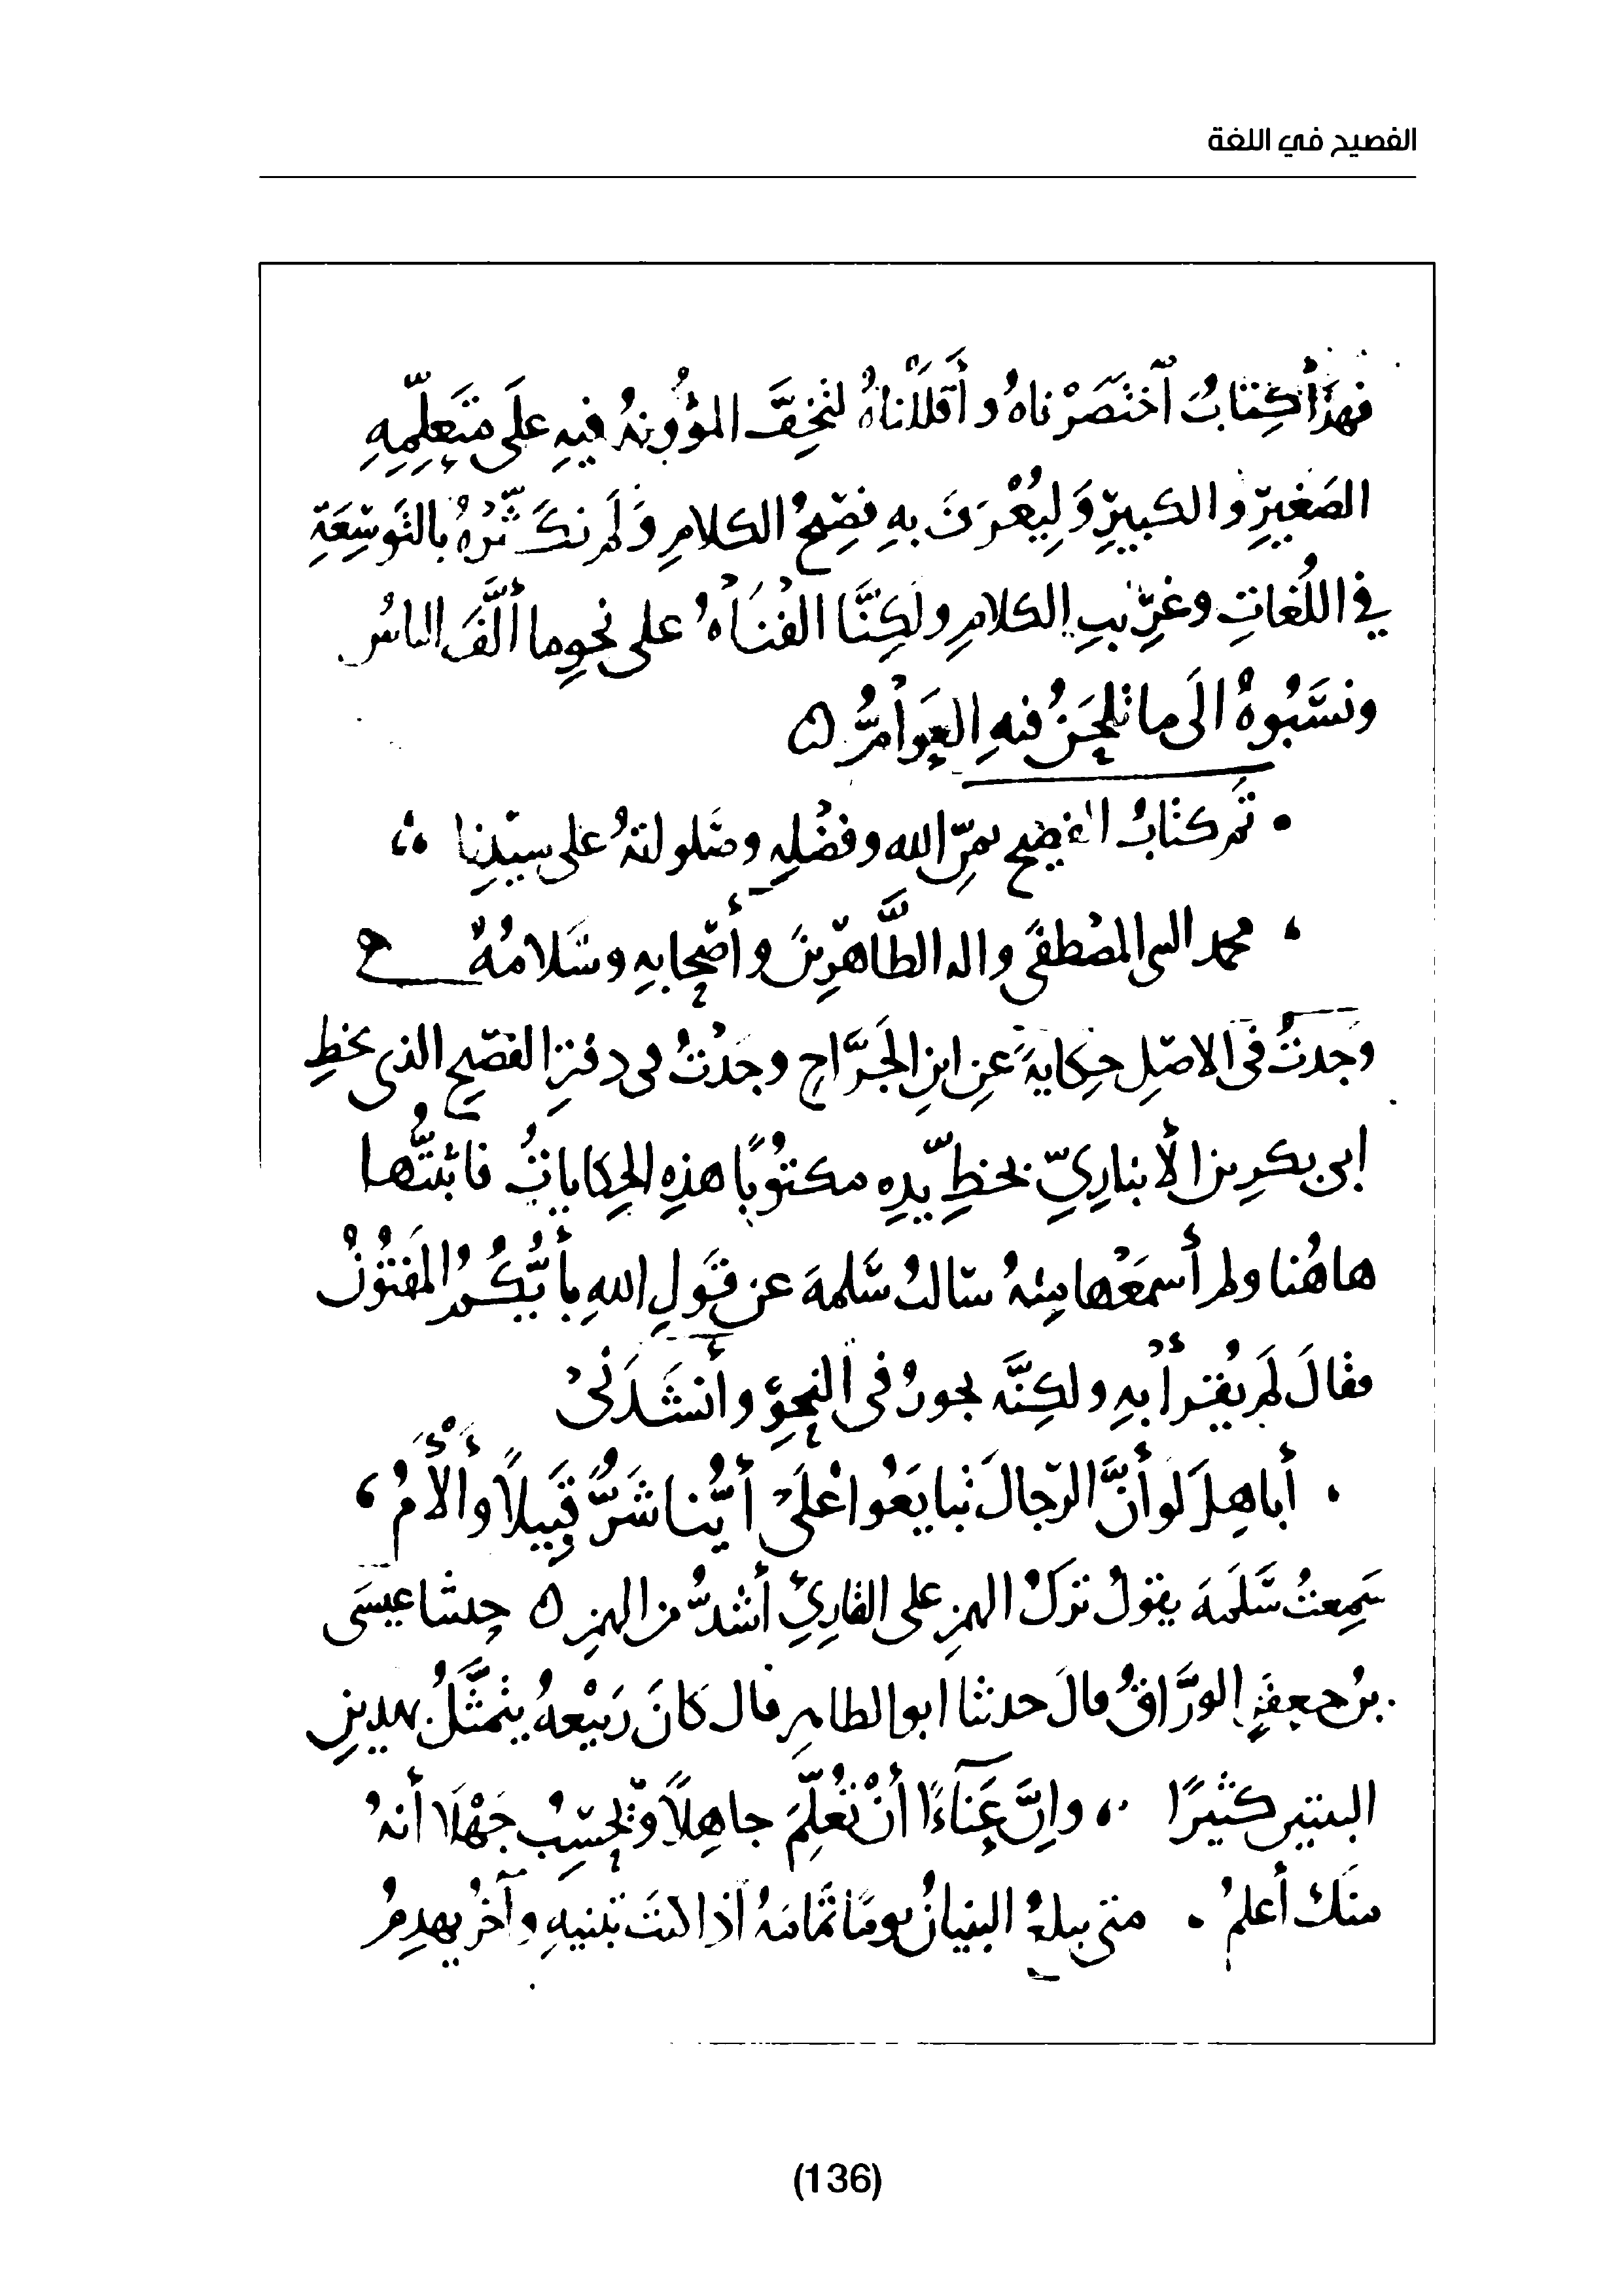 الفصيح في اللغة
فهذا كِتابُ اختَصَرْناهُ وأَقلَلْناهُ لتخِفَّ المؤُونةُ فيهِ علَى متَعلِّمِهِ
الصَغيرِ والكبيرِ وَلِيُعْرَفَ بهِ فصِيحُ الكلامِ وَلَم نكَثِّرْهُ بالتَوسِعَةِ
في اللُغاتِ وغرِيبِ الكلامِ ولَكِنَّا الفْنَاهُ على نحوِ ما ألَّفَ الناسُ
ونسَبُوهُ الَى ما تلحَنُ فيهِ العَوامُّ ه
تم كتابُ الفصيح بمنِّ الله وفضْلِهِ وصَلواتهُ على سيّدِنا
محمد النبى المصْطفَى واله الطَّاهرِينَ وأصحابهِ وسَلامُهُ
وَجدتُ فى الاصلِ حِكايةً عنِ ابنِ الجَرَّاحِ وجَدْتُ فى دفترِ الفصِيحِ الذى بخطِ
ابى بكرِ بن الأنبارِيِّ بخطِّ يدِهِ مكتوُبًا هذِهِ الحِكاياتُ فاثبتُّها
هاهُنا ولم أسمَعْها مِنهُ سَالتُ سَلمةَ عن قَولِ اللهِ بأَيِّكُمُ المَفتُونُ
فقالَ لَم يُقرأْ بهِ ولكِنَّه يجوزُ فى النحوِ وأنشَدَنىْ
أباهِلَ لو أنَّ الرّجالَ تبايَعُوا علَىْ أيُّنا شَرُّ قَبِيلاً وأَلْأَمُ
سَمِعتُ سَلَمَةَ يقولُ تركُ الهمزِ على القارِئِ أشدُّ من الهمزِ ه حدثنا عيسَى
بنُ جعفرٍ الورَّاقُ قالَ حدثنا ابو الطاهرِ قال كانَ رَبيْعةُ يتمثَّلُ بهذينِ
البيتينِ كثيرًا وإنَّ عَناءً أنْ تُعلِّمَ جاهِلاً وَتحسِبُ جَهْلاً أنهُ
منكَ أعلمُ متى يبلغُ البنيانُ يومًا تمامَهُ اذا كنتَ تبنيهِ وآخرُ يهدِمُ
(136)